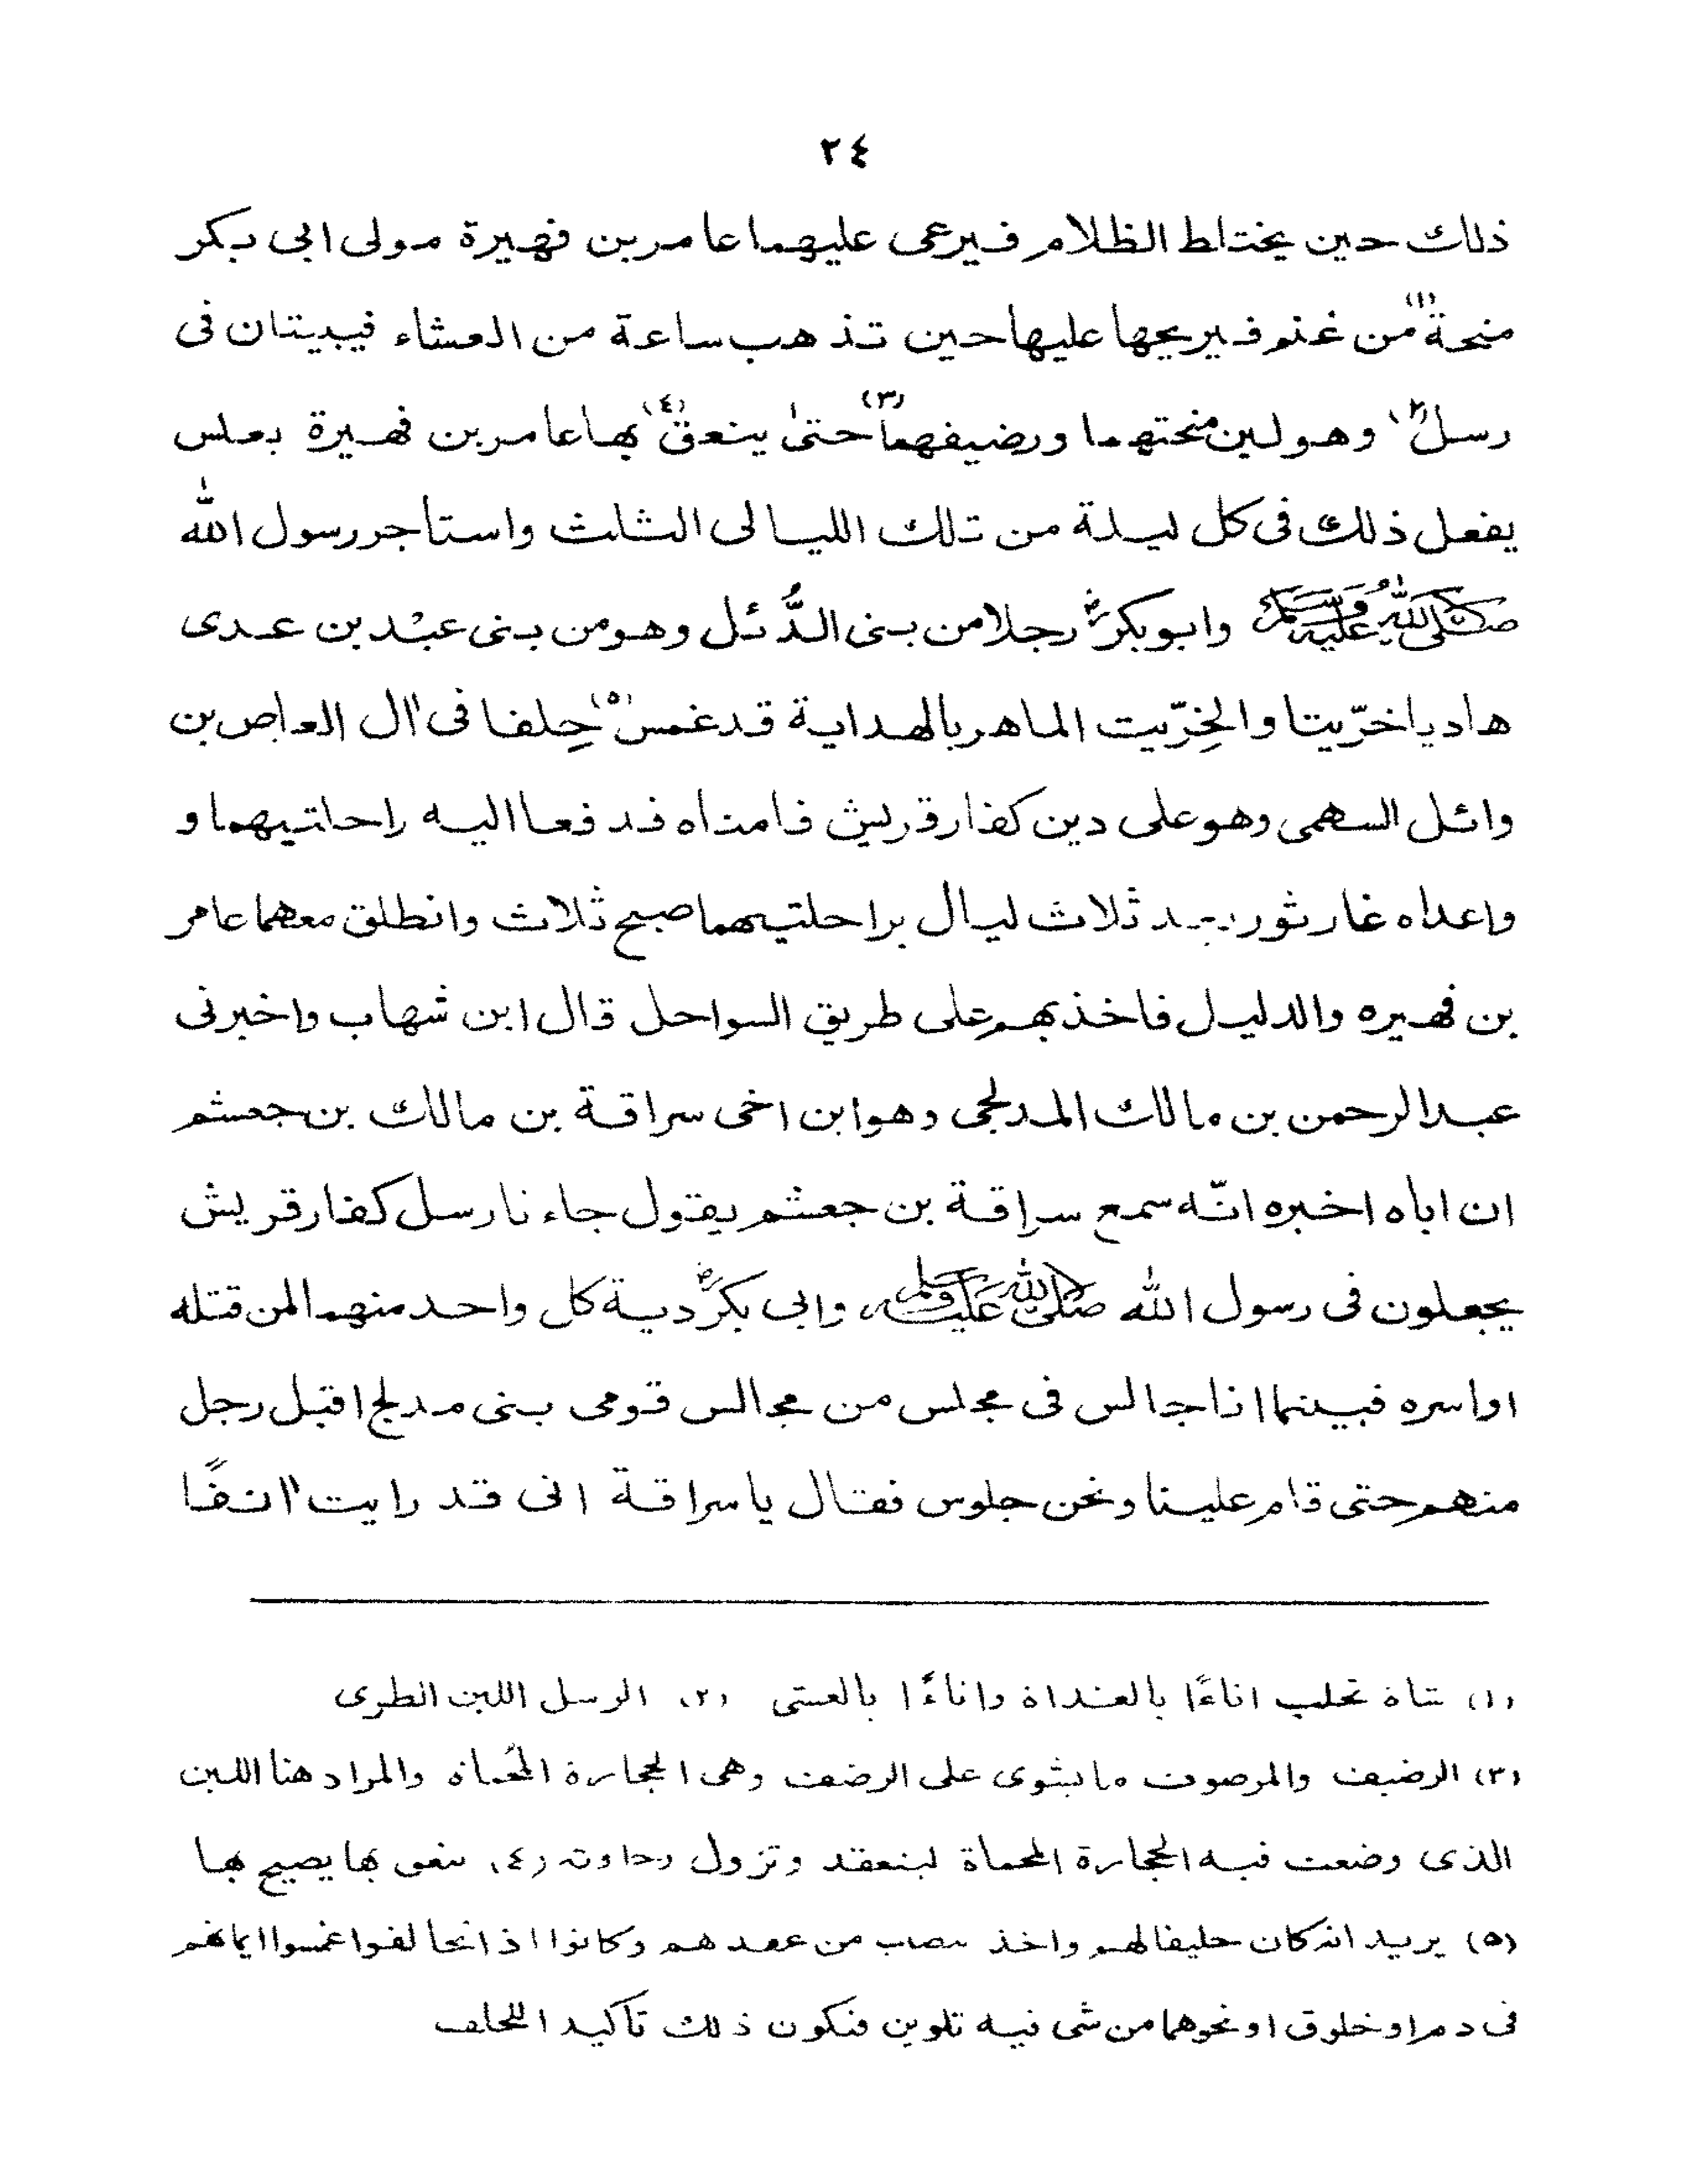 ٢٤
ذلك حين يختلط الظلام فيرعى عليهما عامر بن فهيرة مولى ابى بكر
منحة(١) من غنم فيريحها عليها حين تذهب ساعة من العشاء فيبيتان فى
رسل(٢) وهو لبن منحتهما ورضيفهما(٣) حتىٰ ينعق(٤) بها عامر بن فهيرة بغلس
يفعل ذلك فى كل ليلة من تلك الليالى الثلث واستأجر رسول الله
صَلَّى اللهُ عَلَيْهِ وَسَلَّم وابو بكرؓ رجلا من بنى الدُّئل وهو من بنى عبْد بن عدى
هاديا خرّيتا والخِرّيت الماهر بالهداية قد غمس(٥) حِلفا فى اٰل العاص بن
وائل السهمى وهو على دين كفار قريش فامناه فدفعا اليه راحلتيهما و
واعداه غار ثور بعد ثلاث ليال براحلتيهما صبح ثلاث وانطلق معهما عامر
بن فهيره والدليل فاخذ بهم على طريق السواحل قال ابن شهاب واخبرنى
عبد الرحمن بن مالك المدلجى وهو ابن اخى سراقة بن مالك بن جعشم
ان اباه اخبره انّه سمع سراقة بن جعشم يقول جاءنا رسل كفار قريش
يجعلون فى رسول الله صلى الله عليه وسلم وابى بكرؓ دية كل واحد منهما لمن قتله
او اسره فبينما انا جالس فى مجلس من مجالس قومى بنى مدلج اقبل رجل
منهم حتى قام علينا ونحن جلوس فقال يا سراقة انى قد رايت اٰنفًا
(١) شاة تحلب اناءًا بالغداة واناءًا بالعشى (٢) الرسل اللبن الطرى
(٣) الرضيف والمرضوف ما يشوى على الرضف وهى الحجارة المُحماة والمراد هنا اللبن
الذى وضعت فيه الحجارة المحماة لينعقد وتزول رخاوته (٤) ينعق بها يصيح بها
(٥) يريد انه كان حليفا لهم واخذ بنصيب من عقدهم وكانوا اذا تحالفوا غمسوا ايمانهم
فى دم او خلوق او نحوهما من شى فيه تلوين فيكون ذلك تأكيدا للحلف